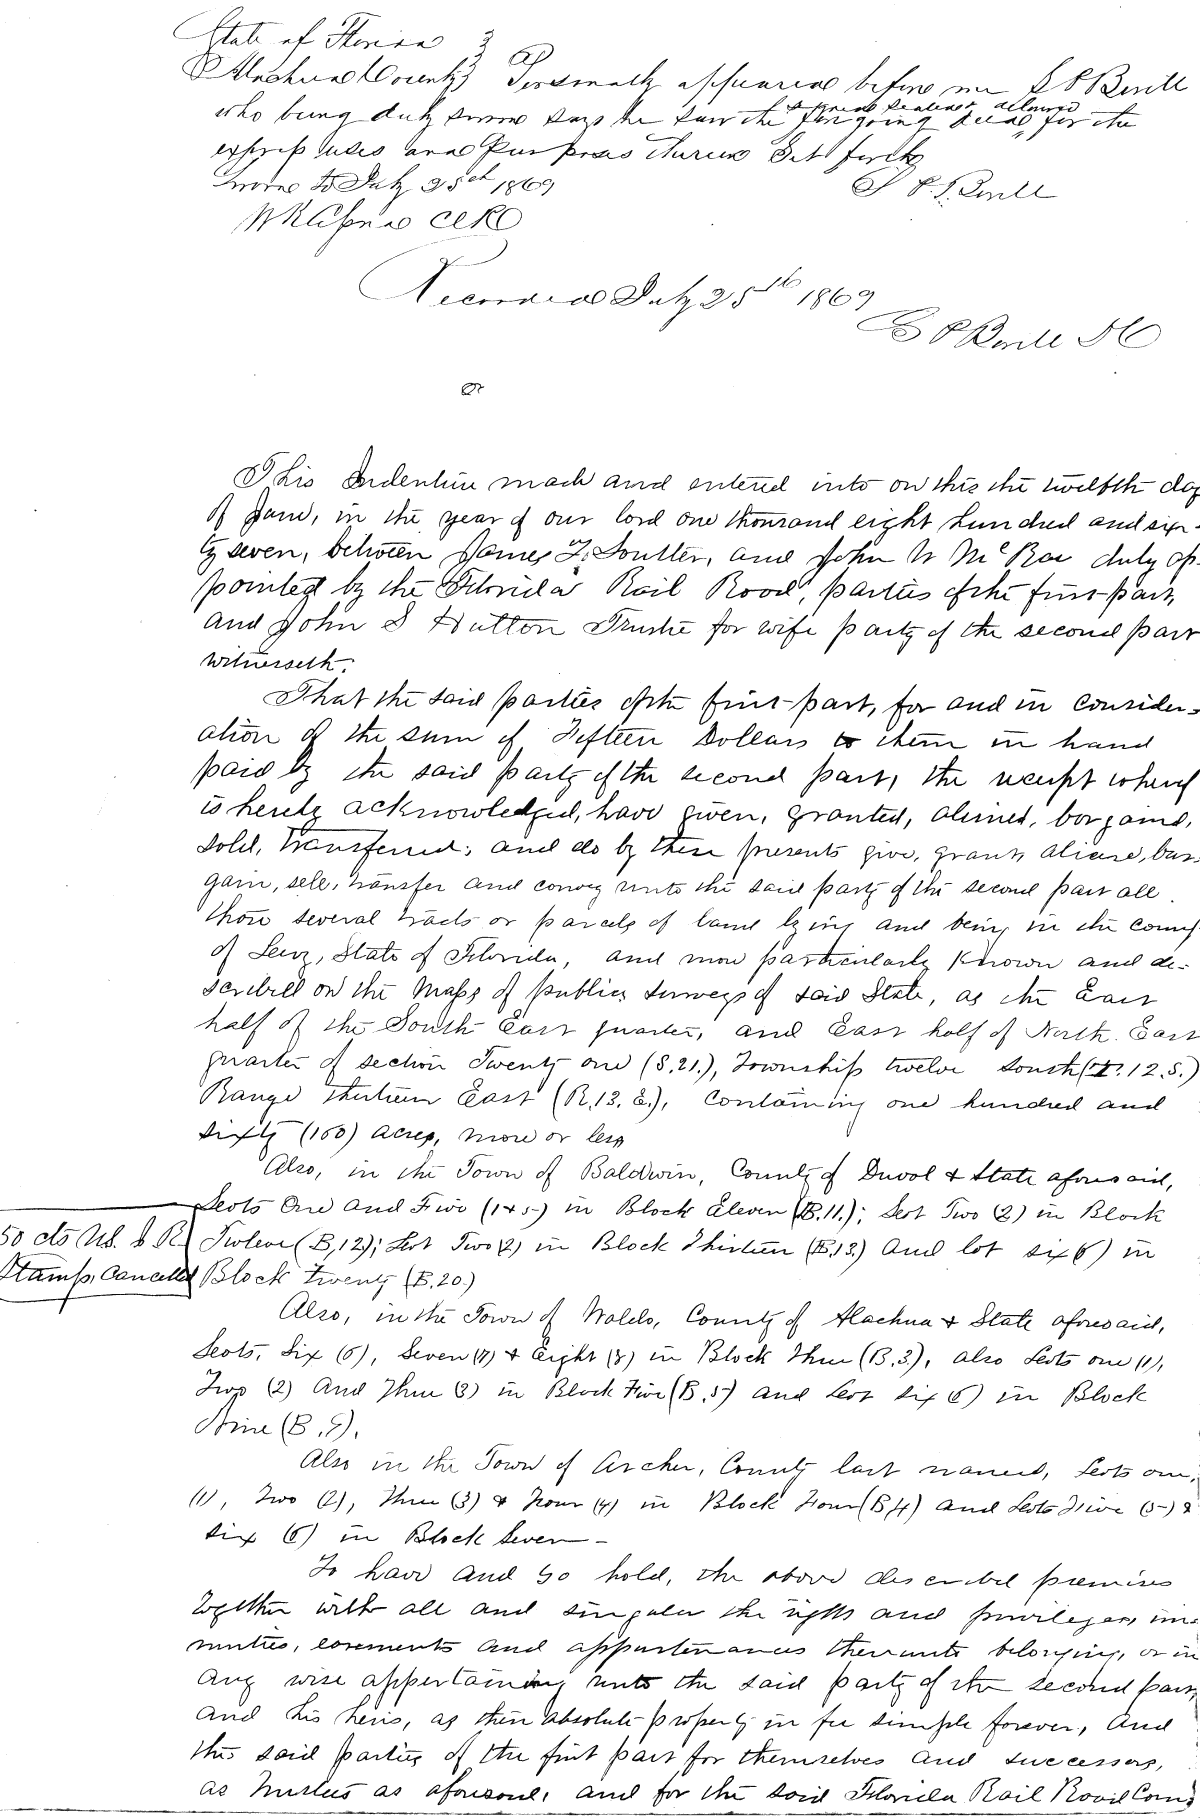 State of Florida
Alachua County Personally appeared before me S P Bevill
who being duly sworn says he saw the foregoing deed signed sealed & allowed for the
express uses and Purposes therein Set forth
Sworn to July 25th 1869 S. P. Bevill
Clk
Recorded July 25th 1869
S P Bevill DC
This Indenture made and entered into on this the twelfth day
of June, in the year of our lord one thousand eight hundred and six-
ty seven, between James T. Soutter, and John W McRae duly ap-
pointed by the Florida Rail Road, parties of the first part,
and John S Hutton Trustee for wife party of the second part
witnesseth:
That the said parties of the first part, for and in consider-
ation of the sum of Fifteen Dollars to them in hand
paid by the said party of the second part, the receipt whereof
is hereby acknowledged, have given, granted, aliened, bargained,
sold, transferred, and do by these presents give, grant, aliene, bar-
gain, sell, transfer and convey unto the said party of the second part all
those several tracts or parcels of land lying and being in the county
of Levy, State of Florida, and more particularly known and de-
scribed on the Maps of publics surveys of said State, as the East
half of the South East quarter, and East half of North East
quarter of section Twenty one (S.21.), Township twelve South (T.12.S.)
Range thirteen East (R.13.E.), Containing one hundred and
sixty (160) acres, more or less
Also, in the Town of Baldwin, County of Duval & State aforesaid,
Lots One and Five (1 & 5) in Block Eleven (B.11.); Lot Two (2) in Block
50 cts U.S. I R. Twelve (B,12); Lot Two (2) in Block Thirteen (B.13.) and lot six (6) in
Stamp, Cancelled Block twenty (B.20.)
Also, in the Town of Waldo, County of Alachua & State aforesaid,
Lots, Six (6), Seven (7) & Eight (8) in Block Three (B.3.), also Lots one (1),
Two (2) And Three (3) in Block Five (B.5) and Lot six (6) in Block
Nine (B.9).
Also in the Town of Archer, County last named, Lots one,
(1), Two (2), Three (3) & Four (4) in Block Four (B4) and Lots Five (5) &
six (6) in Block Seven -
To have and to hold, the above described premises
together with all and singular the rights and privileges, im-
munities, easements and appurtenances thereunto belonging, or in
any wise appertaining unto the said party of the second part,
and his heirs, as their absolute property in fee simple forever, And
the said parties of the first part for themselves and successors,
as trustees as aforesaid, and for the said Florida Rail Road Com